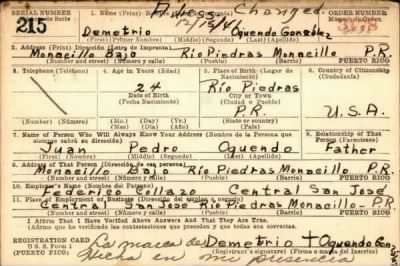 SERIAL NUMBER 1. Name (Print) (Nombre) ORDER NUMBER
Número de Serie Address Changed. Número de Orden
215 Demetrio Oquendo González
(First) (Primer Nombre) (Middle) (Segundo) (Last) (Apellido)
2. Address (Print) (Dirección) (Letra de Imprenta)
Monacillo Bajo Río Piedras Monacillo P.R.
(Number and street) (Número y calle) (Town) (Pueblo) (Municipality) (Municipalidad) PUERTO RICO
3. Telephone (Teléfono) 4. Age in Years (Edad) 5. Place of Birth (Lugar de Nacimiento) 6. Country of Citizenship (Ciudadanía)
24 Río Piedras
Date of Birth City or Town
(Fecha Nacimiento) (Ciudad o Pueblo)
P.R. U.S.A.
(Number) (Número) (Mo.) (Day) (Yr.) State or country
(Mes) (Día) (Año)
7. Name of Person Who Will Always Know Your Address (Nombre de la Persona que siempre sabrá su dirección) 8. Relationship of That Person (Parentesco)
Juan Pedro Oquendo Father
(First) (Nombre) (Middle) (Segundo) (Last) (Apellido)
9. Address of That Person (Dirección de esa persona)
Monacillo Bajo Río Piedras Monacillo P.R.
(Number and street) (Número y calle) (Town) (Pueblo) (Municipality) (Municipalidad) PUERTO RICO
10. Employer's Name (Nombre del Patrono)
Federico Collazo Central San José
11. Place of Employment or Business (Dirección del empleo o negocio)
Central San José Río Piedras Monacillo - P.R.
(Number and street) (Número y calle) (Town) (Pueblo) (Municipality) (Municipalidad) PUERTO RICO
I Affirm That I Have Verified Above Answers and That They are True.
(Afirmo que he verificado las contestaciones que preceden y que todas son correctas).
REGISTRATION CARD La marca de Demetrio + Oquendo
U. S. S. Form 1
(Registrant's signature) (Firma del Inscrito)
hecha en mi presencia